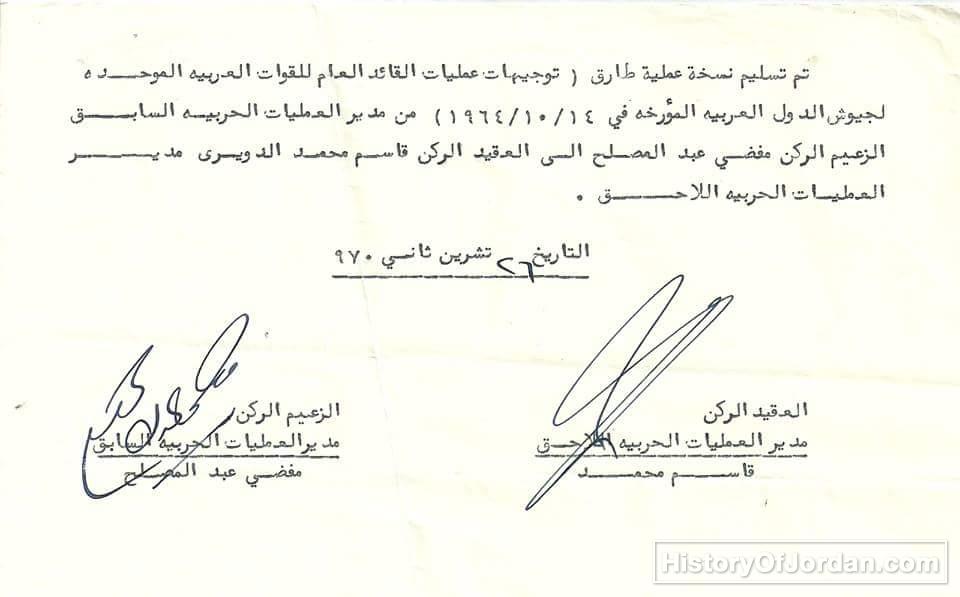 تم تسليم نسخة عملية طارق ( توجيهات عمليات القائد العام للقوات العربيه الموحده
لجيوش الدول العربيه المؤرخه في ١٩٦٤/١٠/١٤) من مدير العمليات الحربيه السابق
الزعيم الركن مفضي عبد المصلح الى العقيد الركن قاسم محمد الدويرى مدير
العمليات الحربيه اللاحق .
التاريخ ٢٦ تشرين ثاني ٩٧٠
العقيد الركن
مدير العمليات الحربيه اللاحق
قاسم محمد
الزعيم الركن
مدير العمليات الحربيه السابق
مفضي عبد المصلح
HistoryOfJordan.com